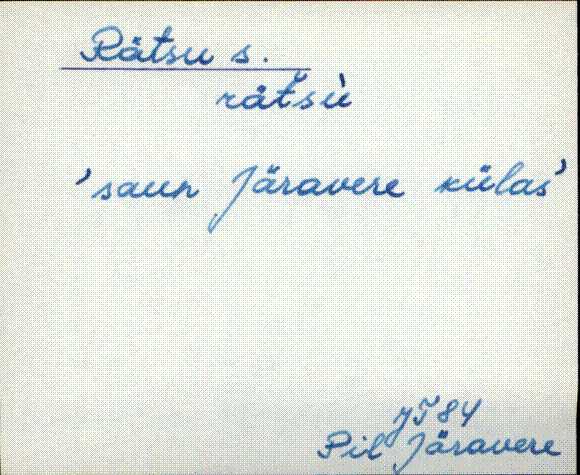 Rätsu s.
rätšù
'saun Järavere külas'
JT 84
Pil Järavere